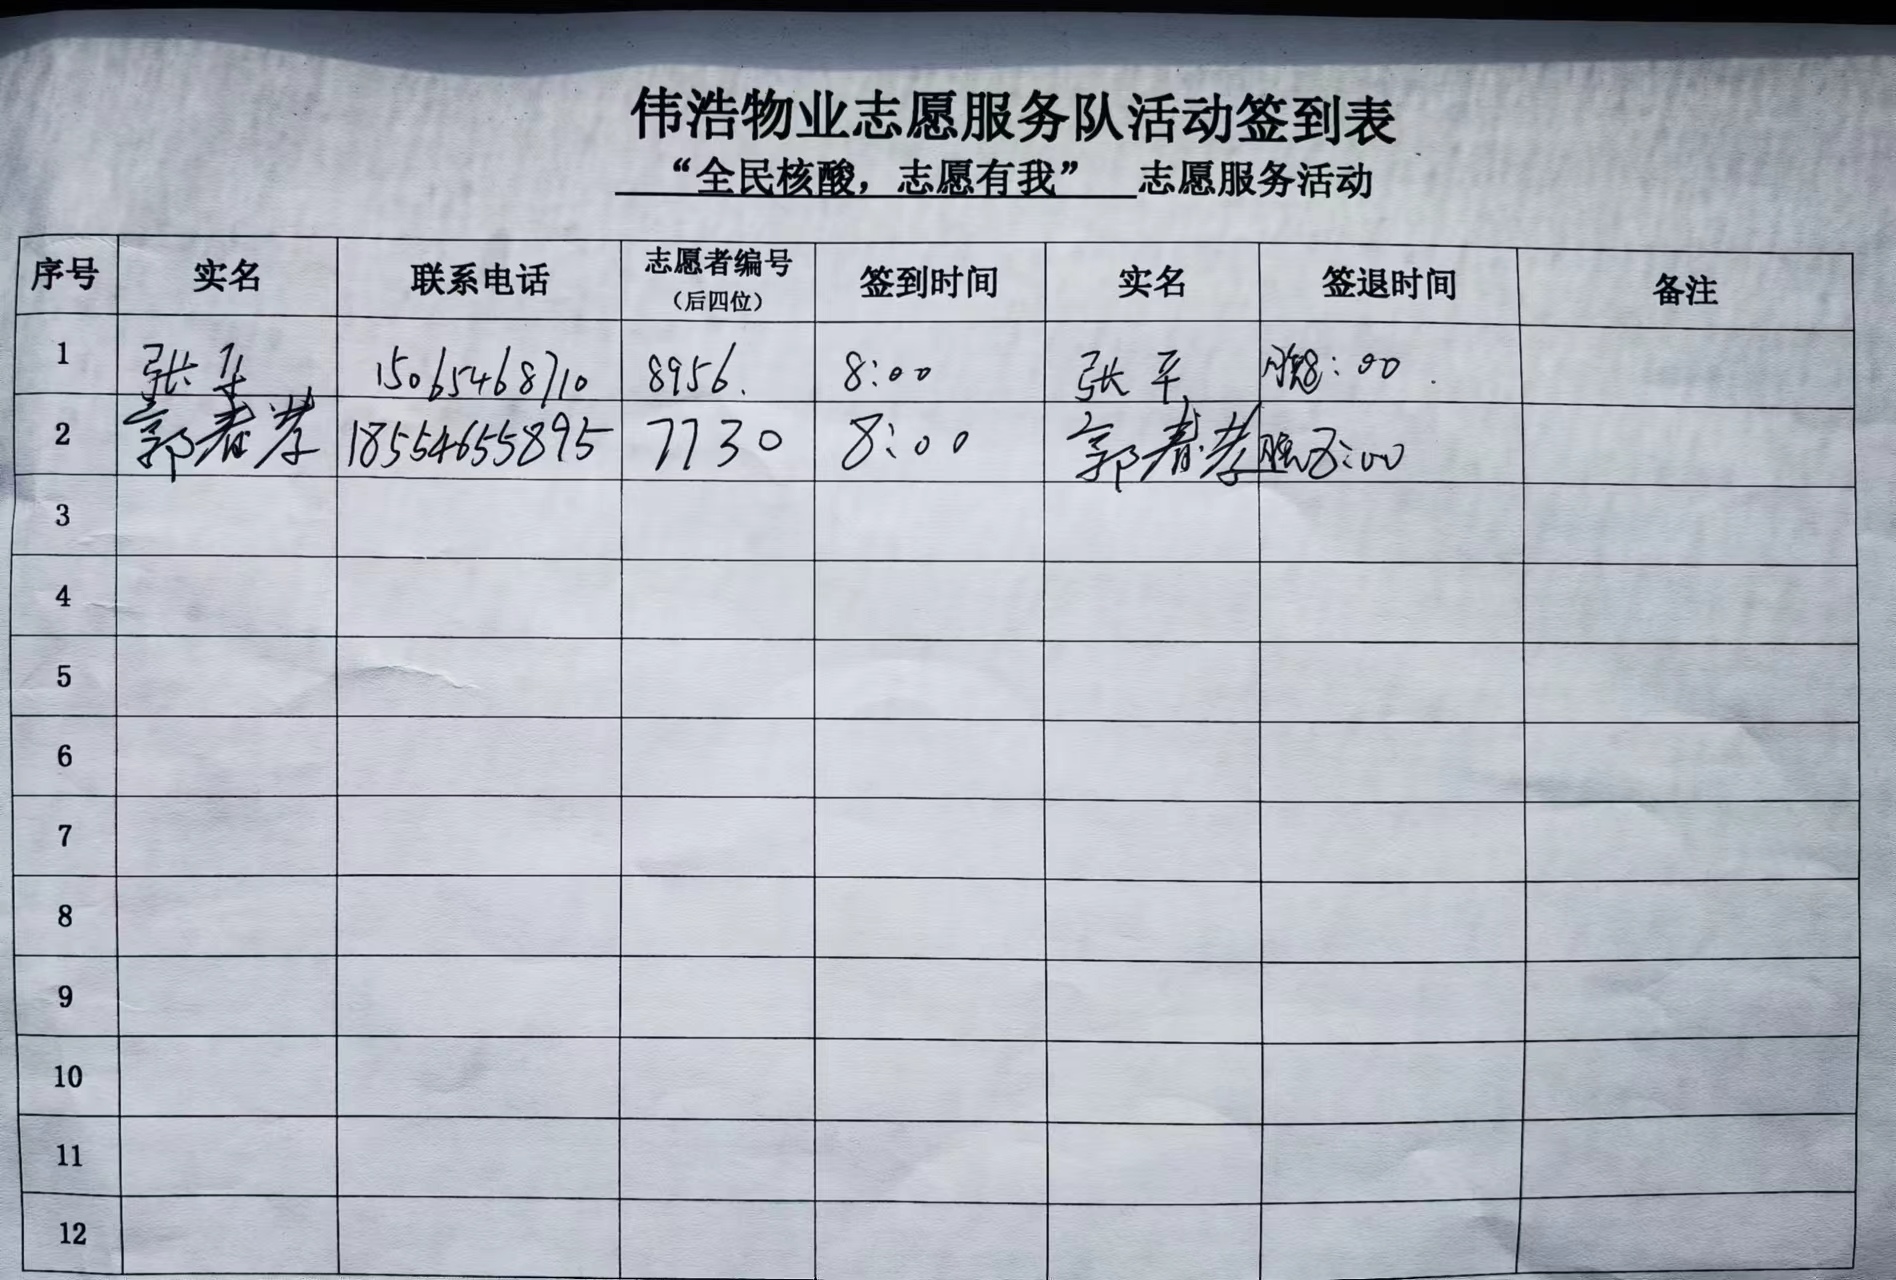 伟浩物业志愿服务队活动签到表
“全民核酸，志愿有我” 志愿服务活动
序号 实名 联系电话 志愿者编号（后四位） 签到时间 实名 签退时间 备注
1 张平 15065468710 8956. 8:00 张平 晚8:00
2 郭春孝 18554655895 7730 8:00 郭春孝 晚8:00
3
4
5
6
7
8
9
10
11
12